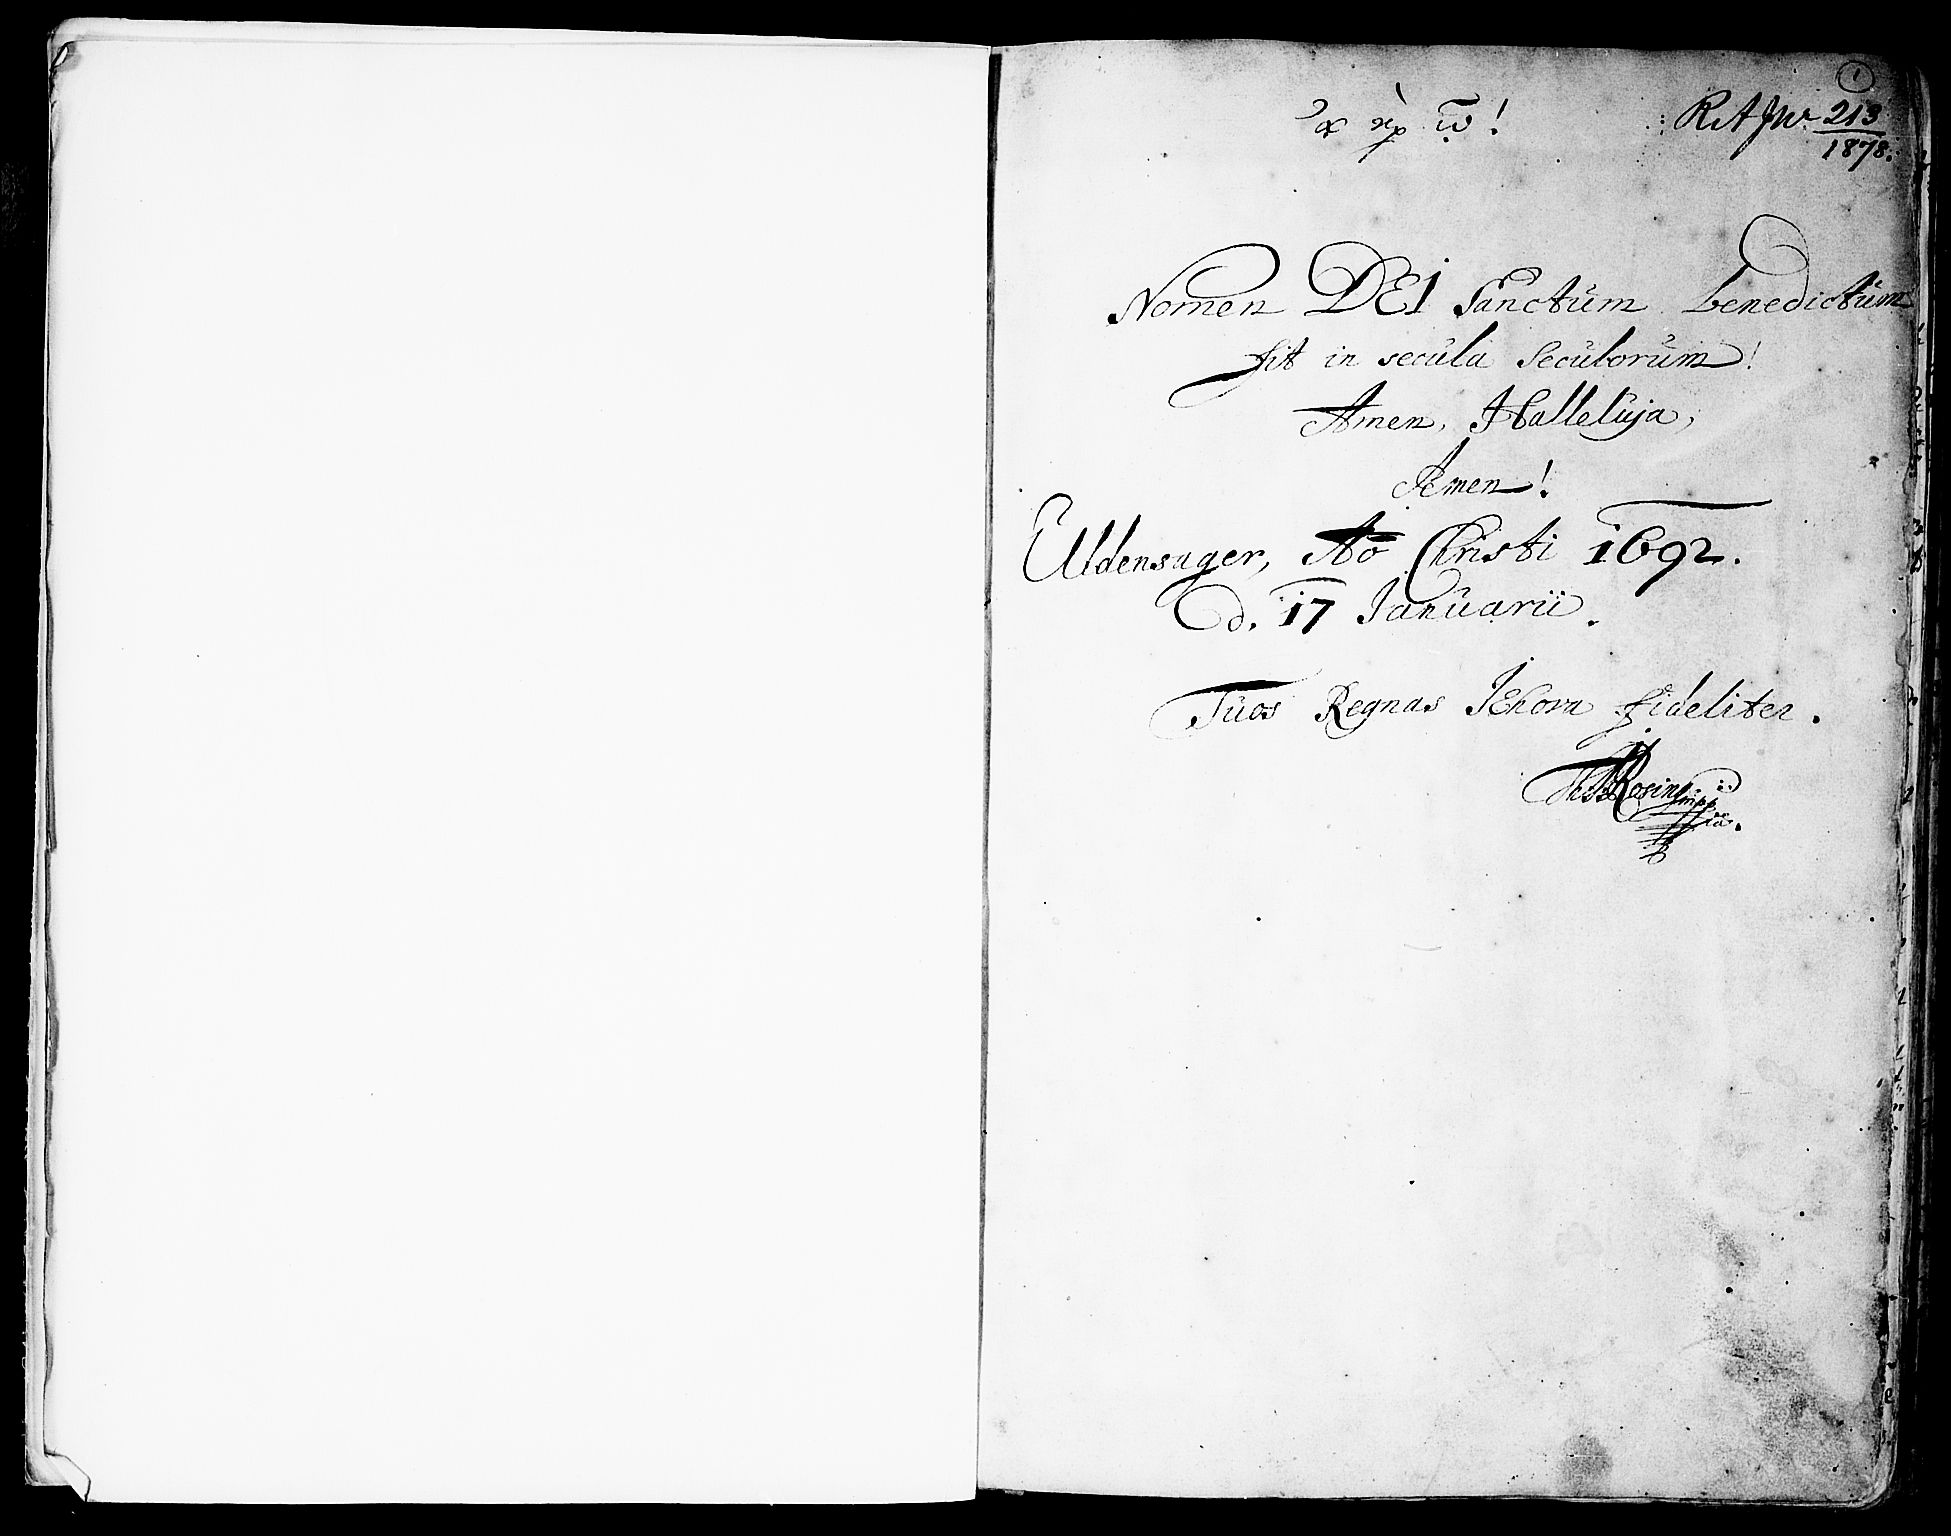 1
RA JNr 213
1878.
Nomen DEI Sanctum benedictum
sit in secula seculorum!
Amen, Halleluja,
Amen!
Ullensager, Ao Christi 1692.
d. 17 Januarii.
Tuos Regnas JEhova fideliter.
Rosing